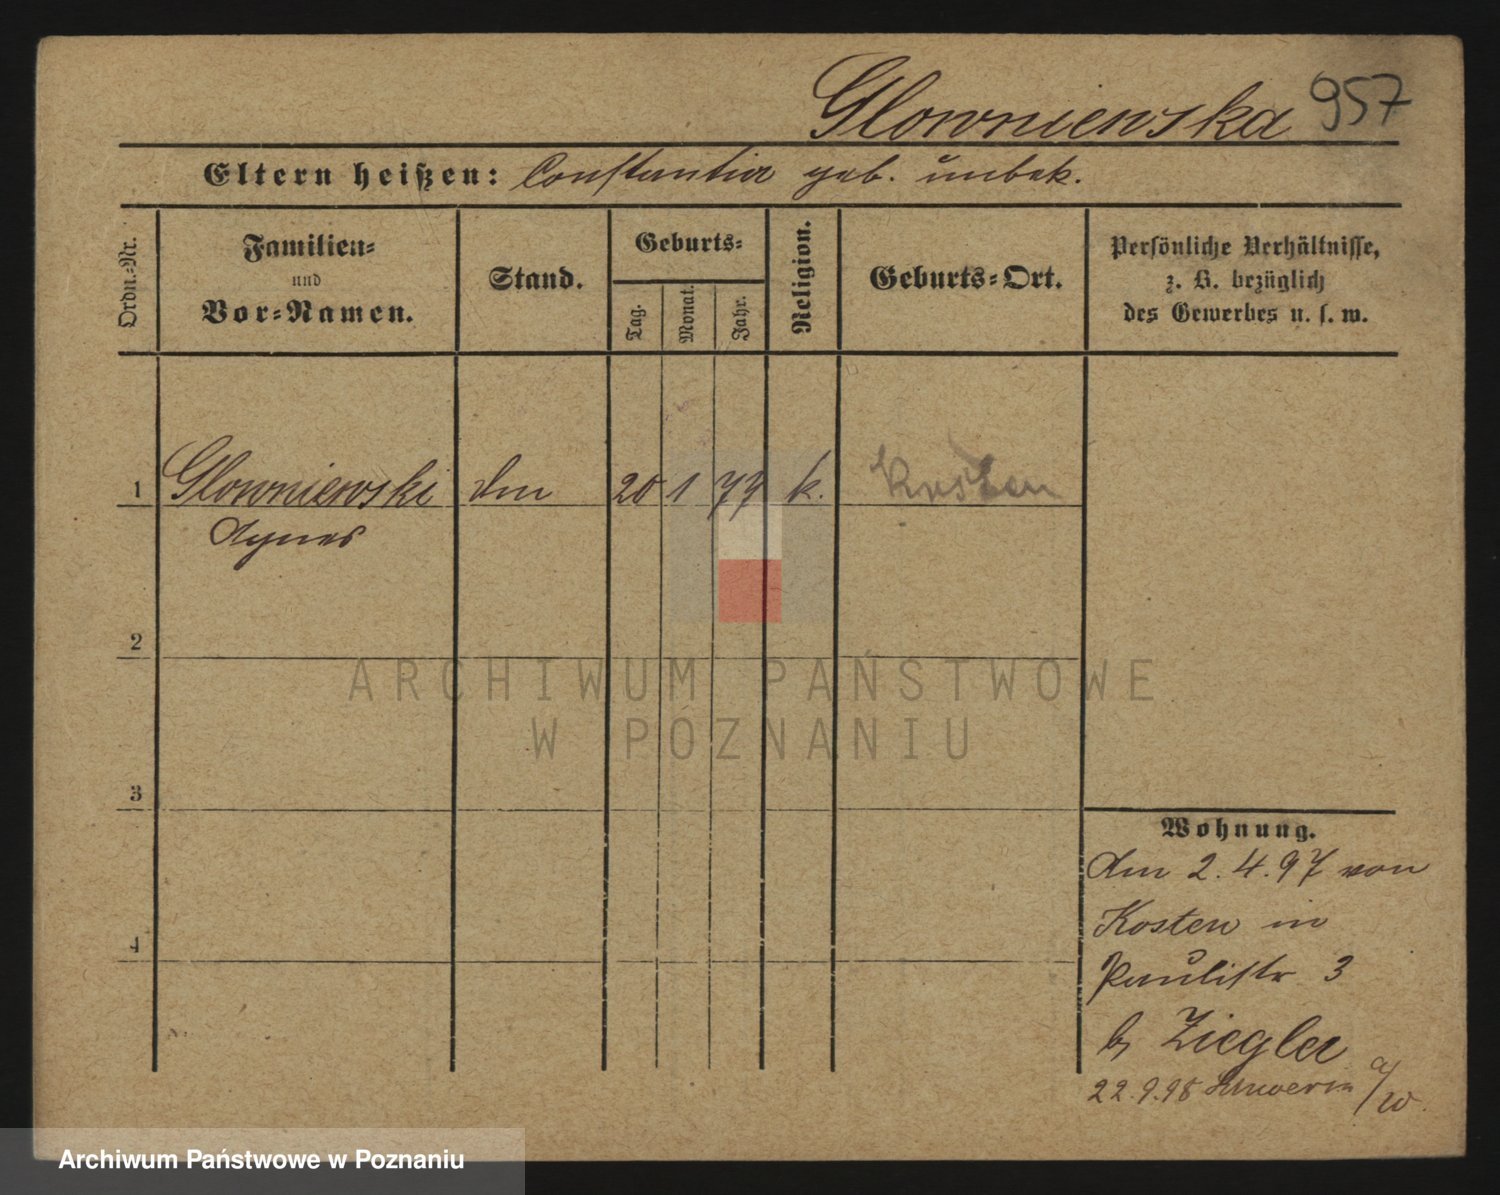 Glowniewska 957
Eltern heißen: Constantia geb. unbek.
Ordn.-Nr.
Familien-
und
Vor-Namen.
Stand.
Geburts-
Tag.
Monat.
Jahr.
Religion.
Geburts-Ort.
Persönliche Verhältnisse,
z. B. bezüglich
des Gewerbes u. s. w.
1 Glowniewski 20 1 79 k. Kosten
Agnes
2
3
4
Wohnung.
Am 2.4.97 von
Kosten in
Paulistr 3
b. Ziegler
22.9.98 Schwerin a/W.
ARCHIWUM PAŃSTWOWE
W POZNANIU
Archiwum Państwowe w Poznaniu